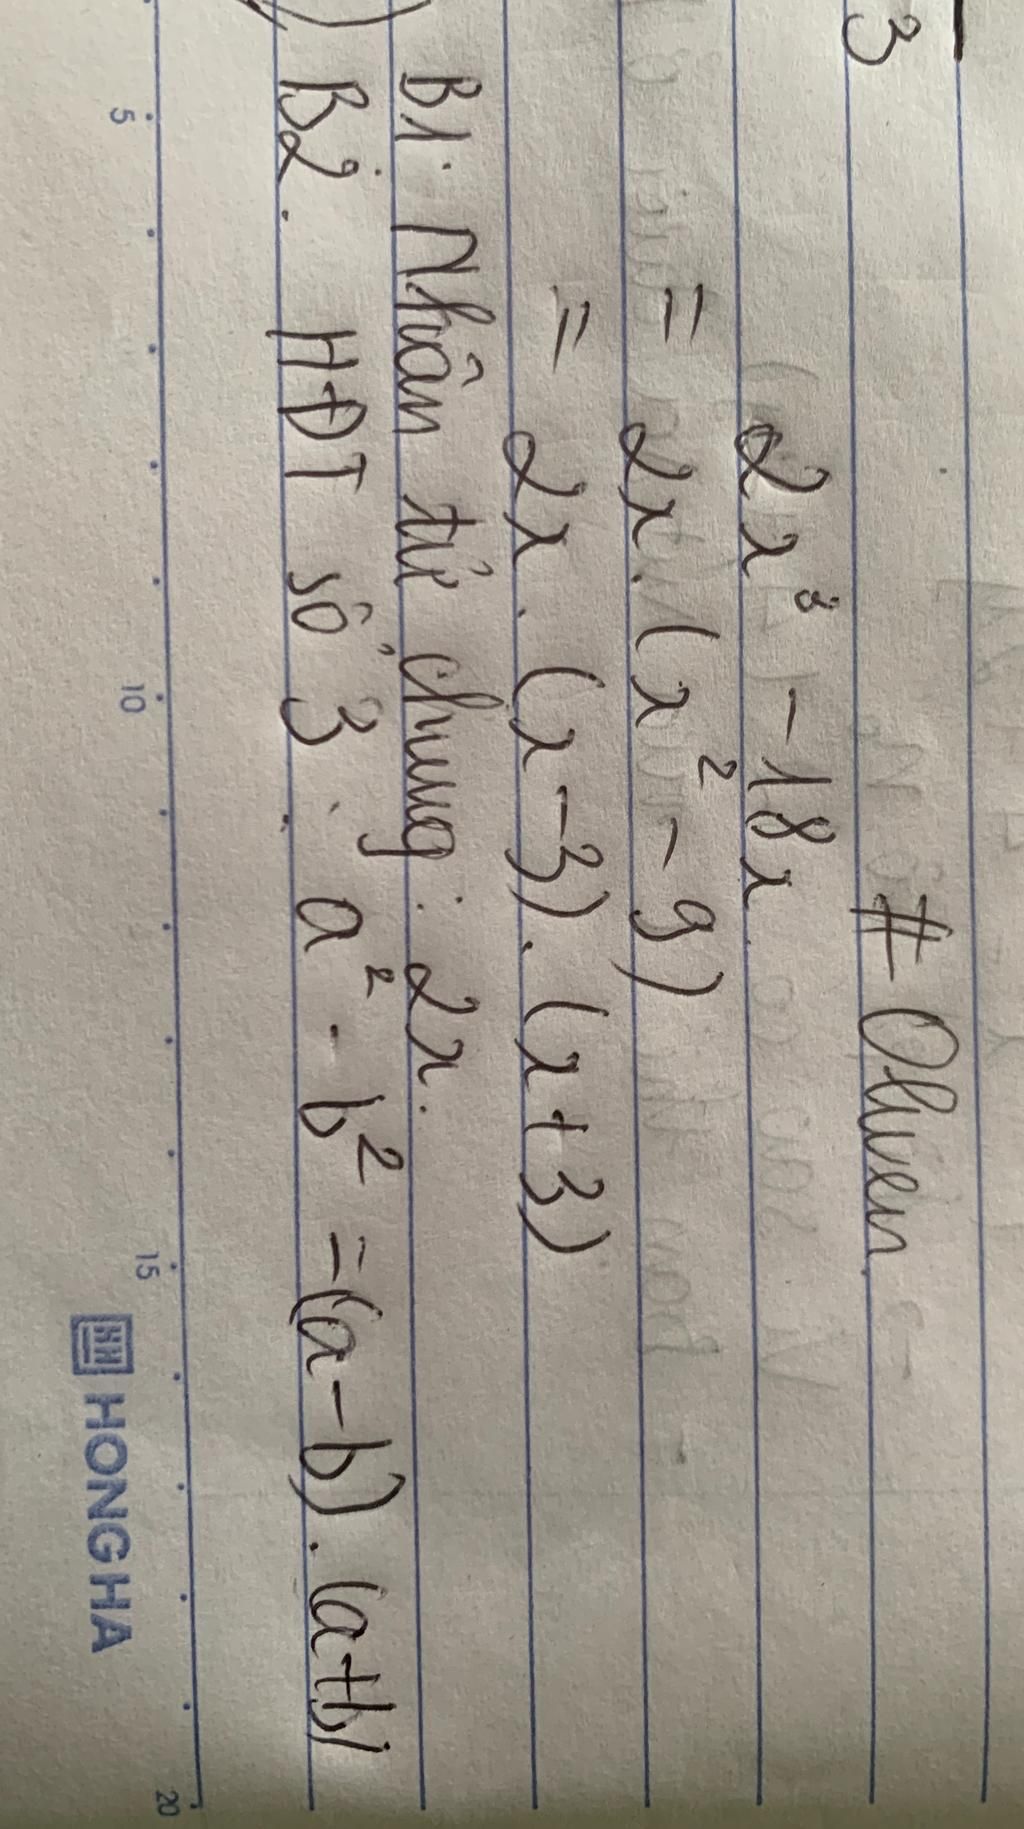 3
# Ohuen
2x³ - 18x
= 2x.(x² - 9)
= 2x.(x-3).(x+3)
B1. Nhân tử chung: 2x.
B2. HĐT số 3. a² - b² = (a-b).(a+b)
5 10 15 20
HH HONG HA